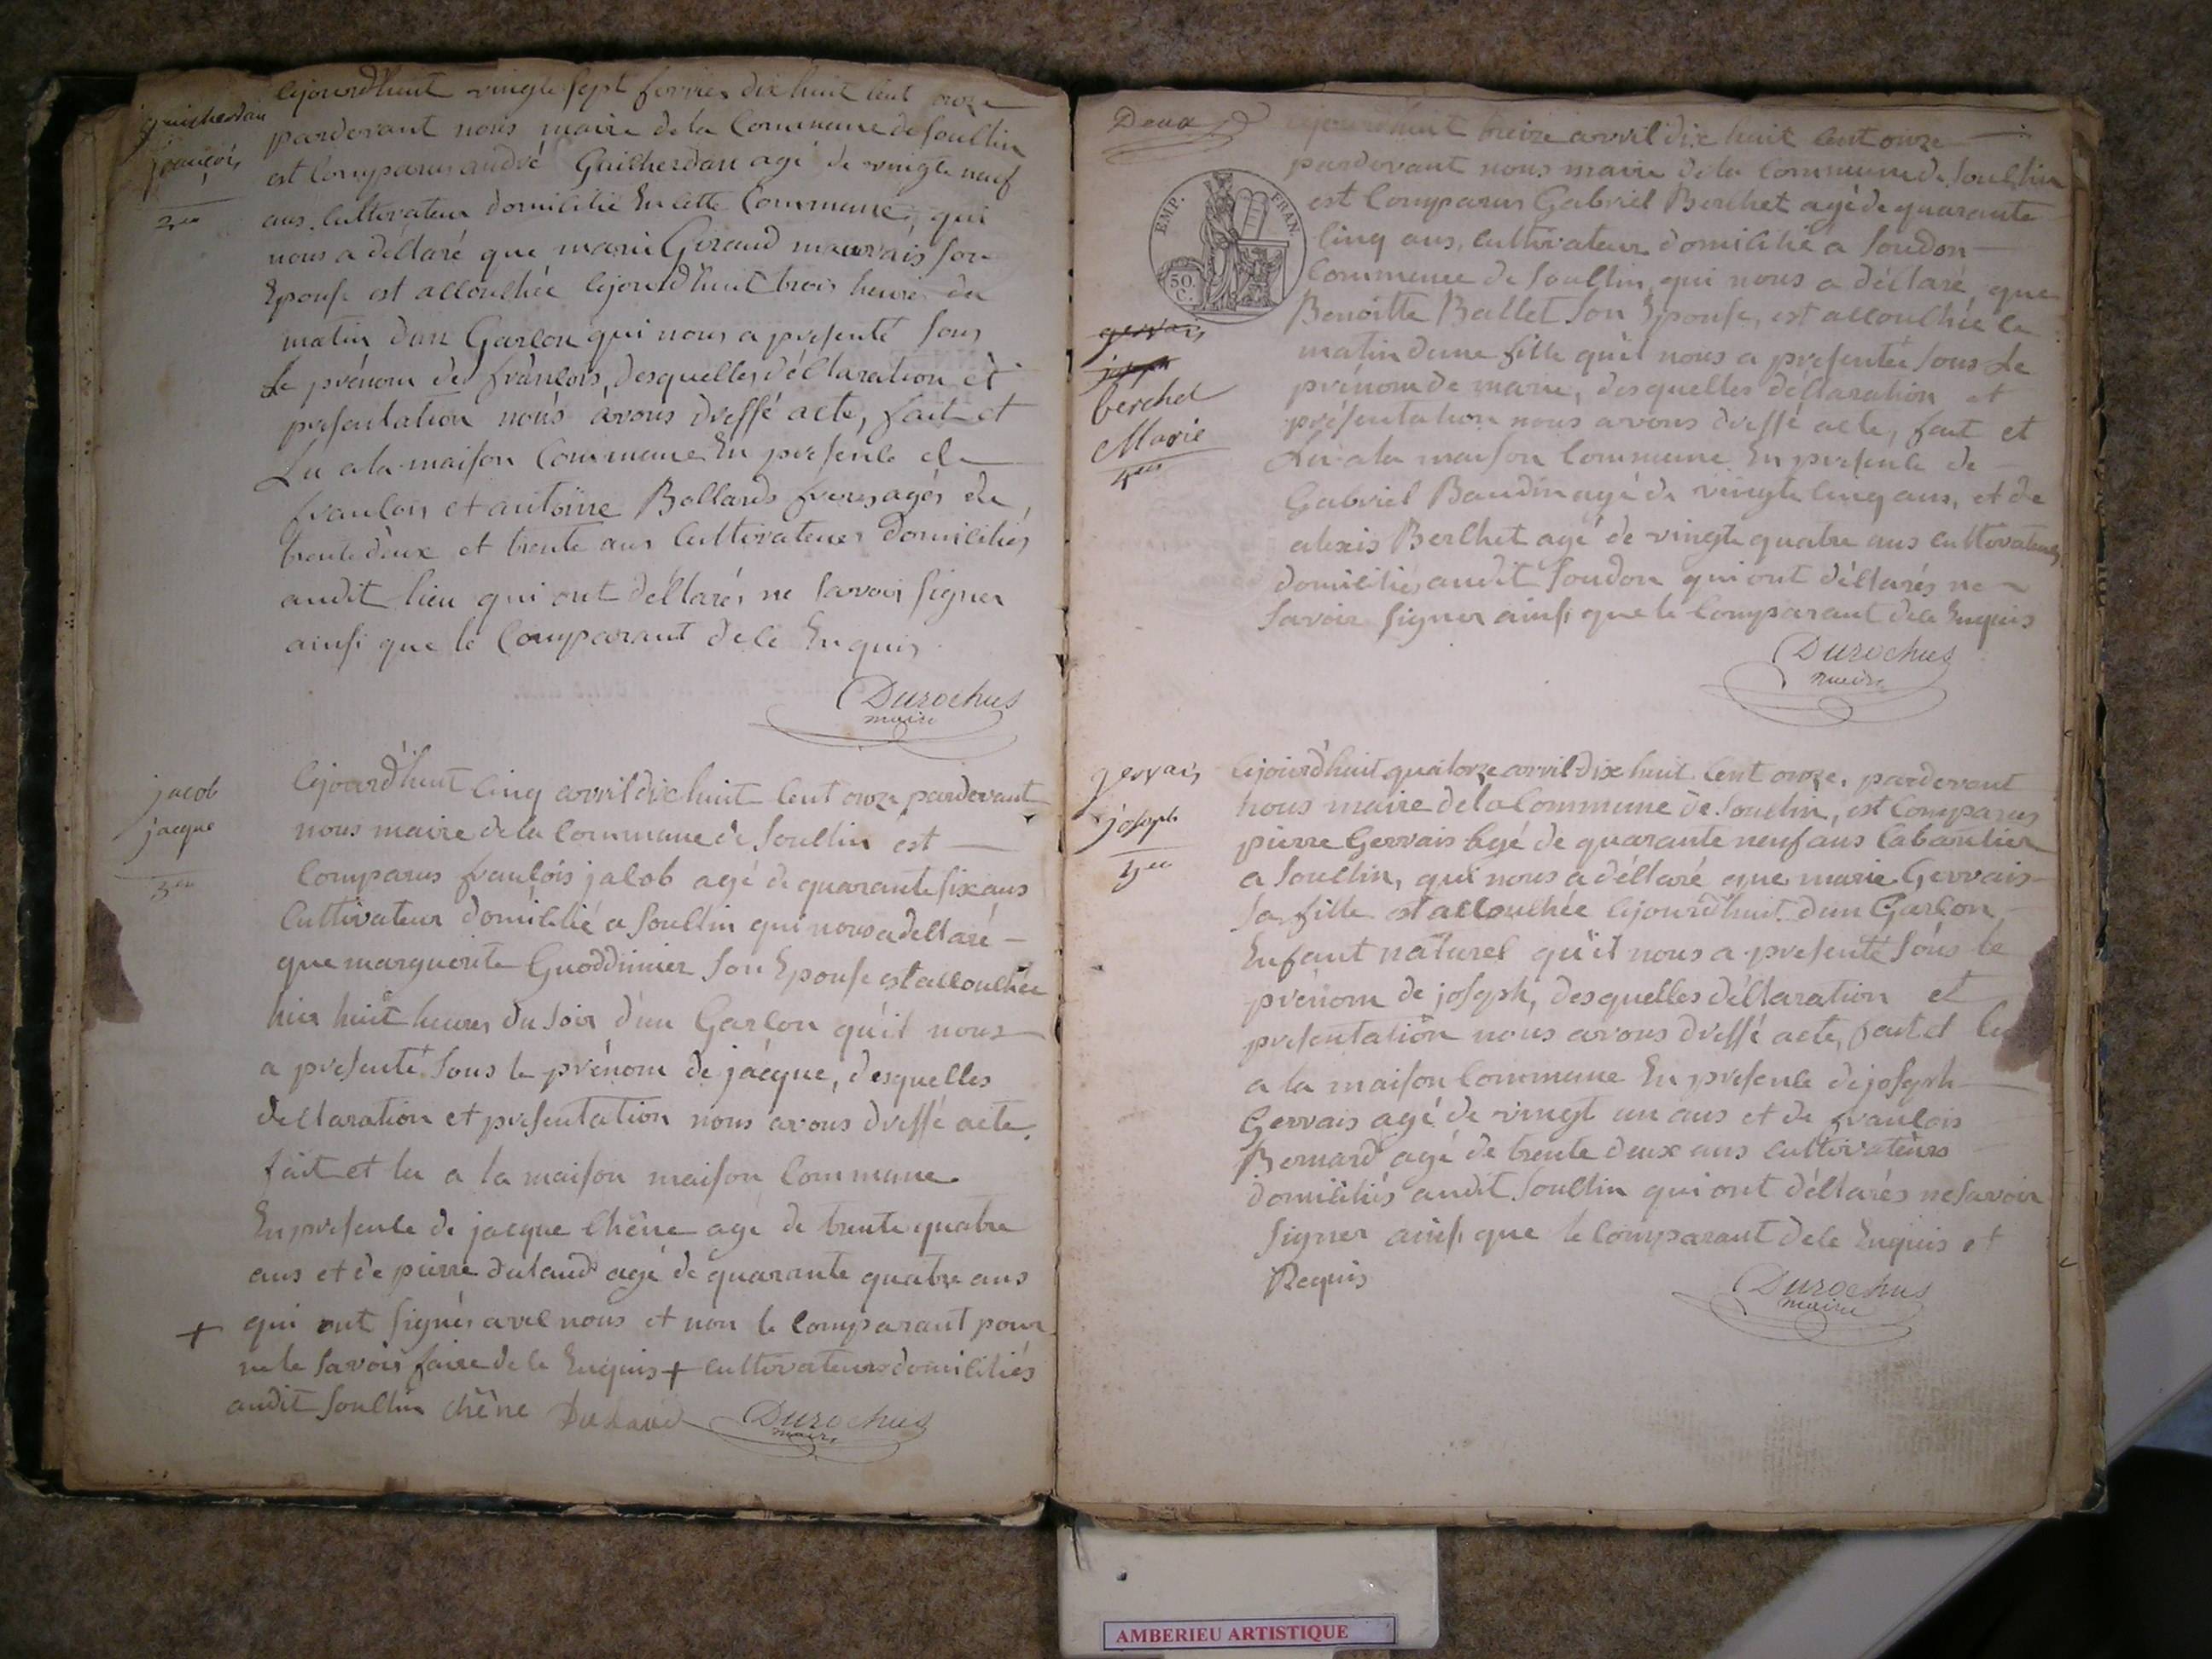 guicherdan
françois
2eu
Cejourdhuit vingt sept fevrier dix huit cent onze
pardevant nous maire de la Commune de Souclin
est Comparus andré Guicherdan agé de vingte neuf
ans, Cultivateur domicilié En cette Commune, qui
nous a déclaré que marie Giraud mauvais son
Epouse est accouchée Cejourdhuit trois heures du
matin dun Garcon qui nous a presenté sous
Le prénom de françois, desquelles déclaration et
presentation nous avons dressé acte, fait et
Lu a la maison Commune En presence de
francois et antoine Bollards freres agés de
trente deux et trente ans Cultivateurs domiciliés
audit lieu qui ont déclarés ne savoir signer
ainsi que le Comparant de ce Enquis
Durochus
maire
jacob
jacque
3eu
Cejourdhuit Cinq avril dix huit Cent onze pardevant
nous maire de la Commune de Souclin est
Comparus francois jacob agé de quarante six ans
Cultivateur domicilié a Souclin qui nous a déclaré
que marguerite Guoddimier son Epouse est accouchée
hier huit heures du soir d'un Garcon qu'il nous
a presenté sous le prénom de jacque, desquelles
declaration et presentation nous avons dressé acte,
fait et lu a la maison maison Commune
En presence de jacque Chêne agé de trente quatre
ans et de pierre dulaud agé de quarante quatre ans
+ qui ont signés avec nous et non le Comparant pour
ne le savoir faire de ce Enquis + Cultivateurs domiciliés
audit Souclin Chêne Dulaud Durochus
maire
Deux
EMP. FRAN.
50.
C.
gervais
joseph
berchet
Marie
4eu
Cejourdhuit treize avril dix huit Cent onze
pardevant nous maire de la Commune de Souclin
est Comparus Gabriel Berchet agé de quarante
Cinq ans, Cultivateur domicilié a Soudon
Commune de Souclin, qui nous a déclaré que
Benoitte Ballet son Epouse, est accouchée ce
matin dune fille qu'il nous a presentée sous Le
prénom de marie, desquelles déclaration et
présentation nous avons dressé acte, fait et
Lu a la maison Commune En presence de
Gabriel Baudin agé de vingte Cinq ans, et de
alexis Berchet agé de vingte quatre ans Cultivateurs
domiciliés audit Soudon qui ont déclarés ne
savoir signer ainsi que le Comparant de ce Enquis
Durochus
maire
gervais
joseph
5eu
Cejourdhuit quatorze avril dix huit Cent onze, pardevant
nous maire de la Commune de Souclin, est Comparus
pierre Gervais agé de quarante neuf ans Cabaretier
a Souclin, qui nous a déclaré que marie Gervais
sa fille est accouchée Cejourd'huit dun Garcon
Enfant naturel qu'il nous a presenté sous le
prénom de joseph, desquelles déclaration et
presentation nous avons dressé acte, fait et lu
a la maison Commune En presence de joseph
Gervais agé de vingt un ans et de francois
Bernard agé de trente deux ans Cultivateurs
domiciliés audit Souclin qui ont déclarés ne savoir
signer ainsi que le Comparant de ce Enquis et
Requis
Durochus
maire
AMBERIEU ARTISTIQUE